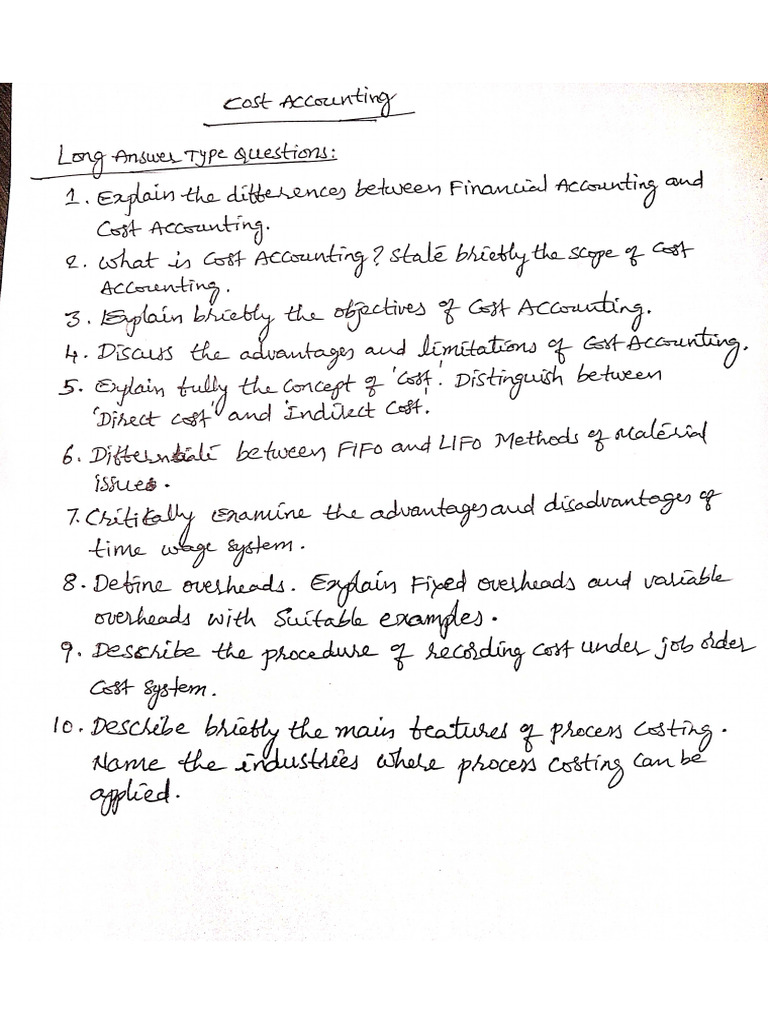 Cost Accounting
Long Answer Type Questions:
1. Explain the differences between Financial Accounting and
Cost Accounting.
2. What is Cost Accounting? State briefly the scope of Cost
Accounting.
3. Explain briefly the objectives of Cost Accounting.
4. Discuss the advantages and limitations of Cost Accounting.
5. Explain fully the concept of 'Cost'. Distinguish between
'Direct cost' and 'Indirect Cost'.
6. Differentiate between FIFO and LIFO Methods of Material
issues.
7. Critically examine the advantages and disadvantages of
time wage system.
8. Define overheads. Explain Fixed overheads and variable
overheads with Suitable examples.
9. Describe the procedure of recording cost under job order
Cost System.
10. Describe briefly the main features of process costing.
Name the industries where process costing can be
applied.